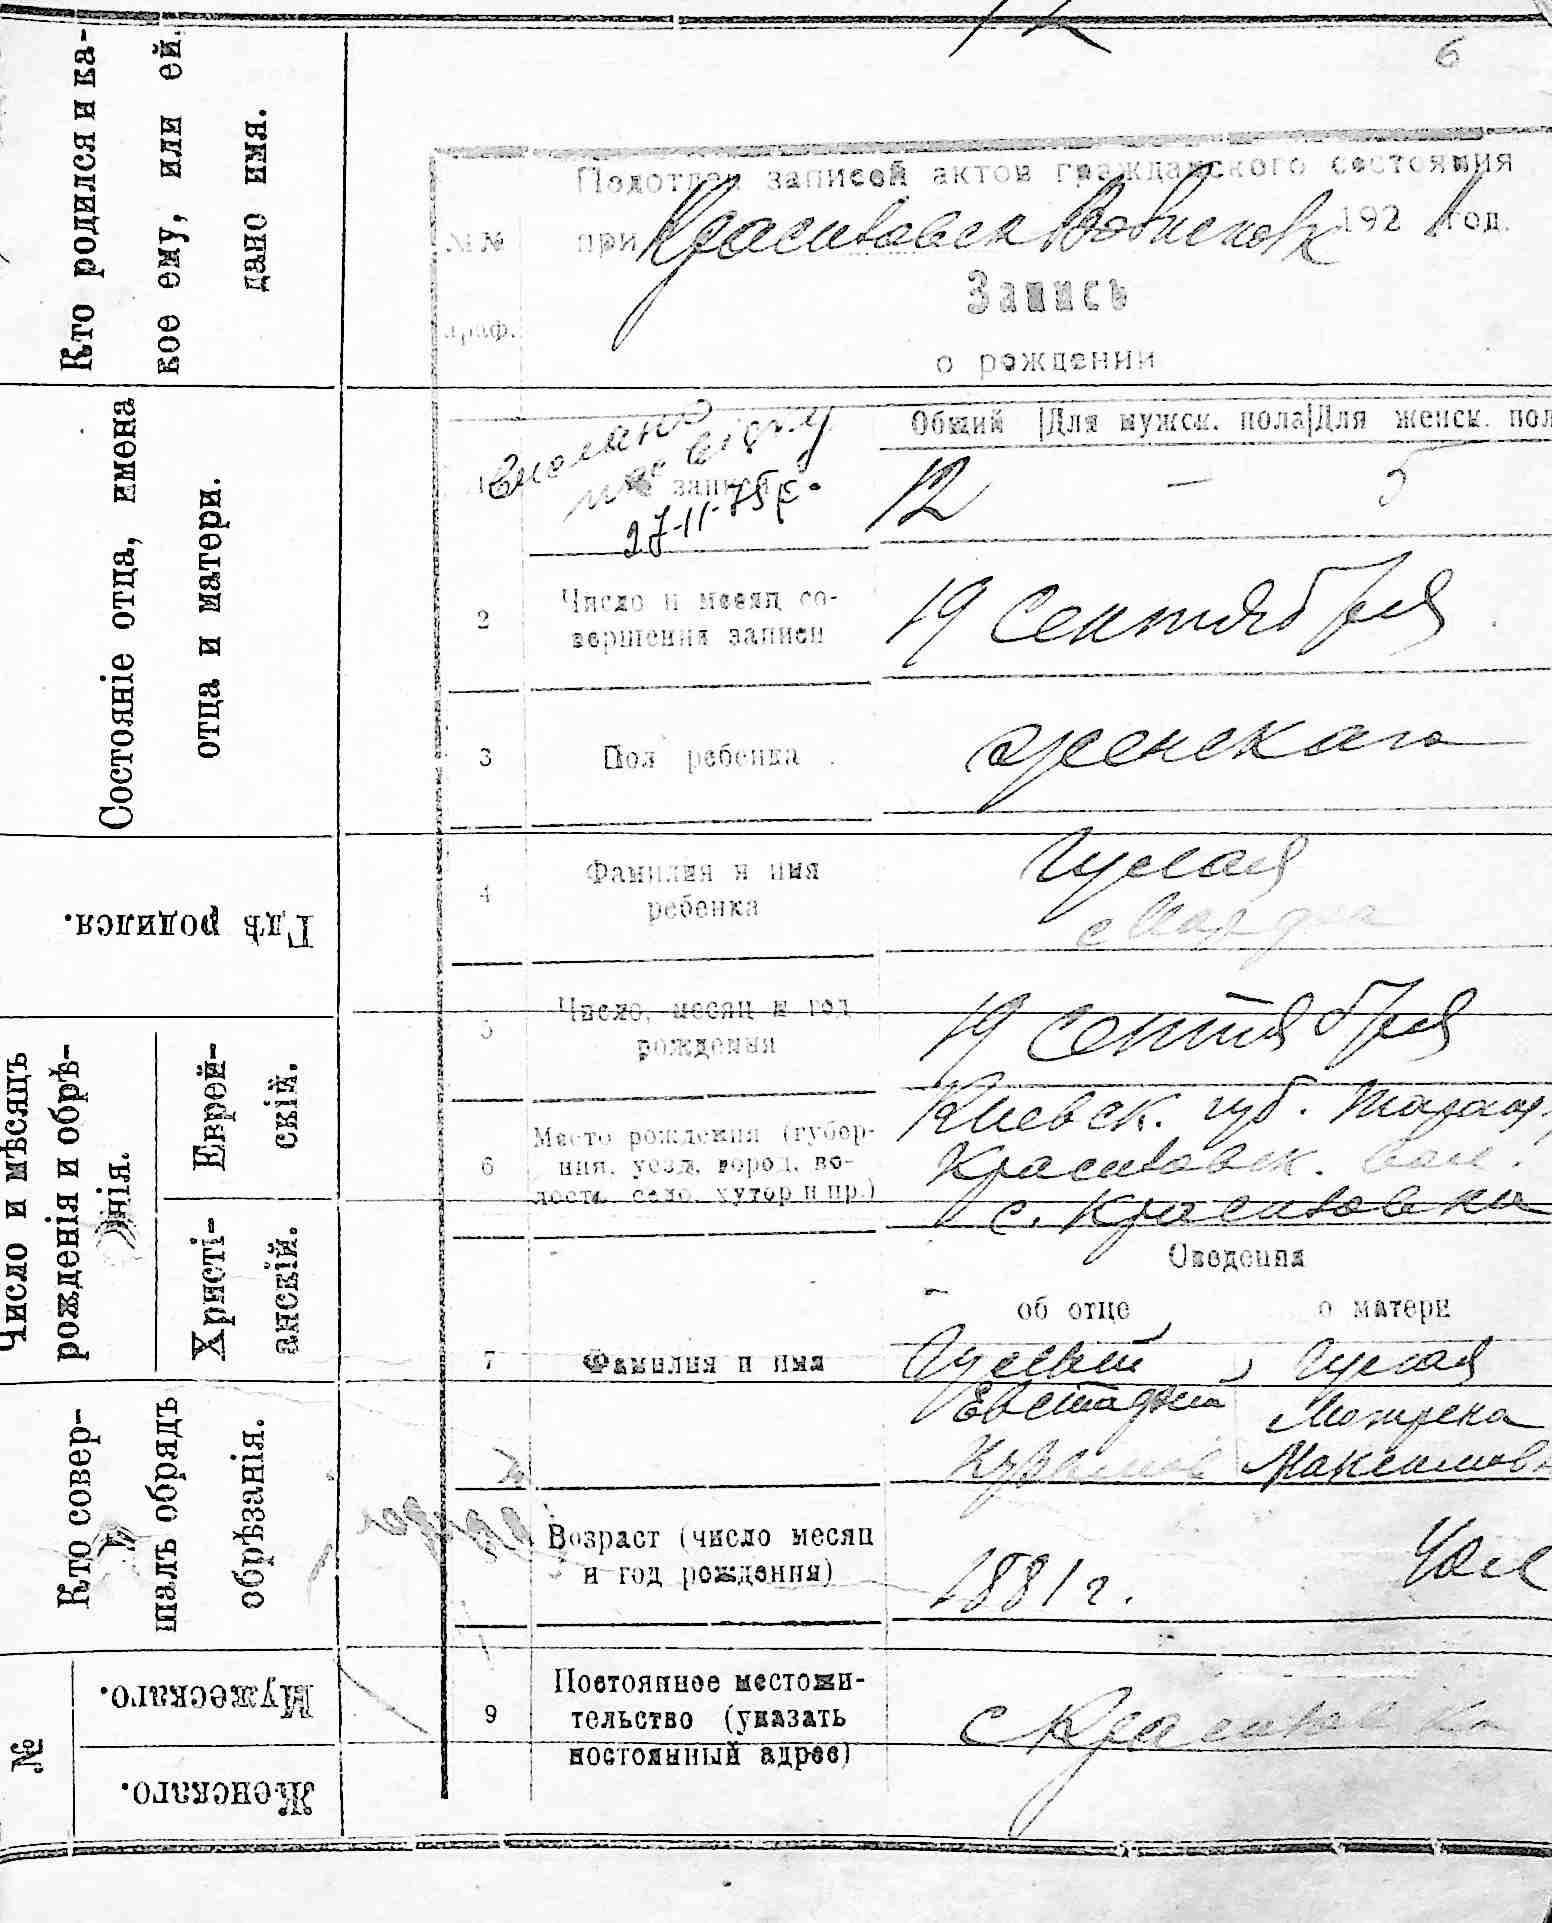 6
Кто родился и ка-
кое ему, или ей,
дано имя.
Состояніе отца, имена
отца и матери.
Гдѣ родился.
Число и мѣсяцъ
рожденія и обрѣ-
нія.
Еврей-
скій.
Христі-
анскій.
Кто совер-
шалъ обрядъ
обрѣзанія.
№
Мужескаго.
Женскаго.
Подотдел записей актов гражданского состояния
№№ при 192 год.
граф.
Запись
о рождении
Общий |Для мужск. пола|Для женск. пол
записи
27-11-75р.
12 — 5
2 Число и месяц со-
вершения записи
19 Сентября
3 Пол ребенка
женскаго
4 Фамилия и имя
ребенка
5 Число, месяц и год
рождения
19 Сентября
6 Место рождения (губер-
ния, уезд, город, во-
лость, село, хутор и пр.)
Киевск. губ.
Красиловск. вол.
с. Красиловка
Сведения
об отце о матери
7 Фамилия и имя
Максимов
Возраст (число месяц
и год рождения)
1881 г.
9 Постоянное местожи-
тельство (указать
постоянный адрес)
с Красиловка